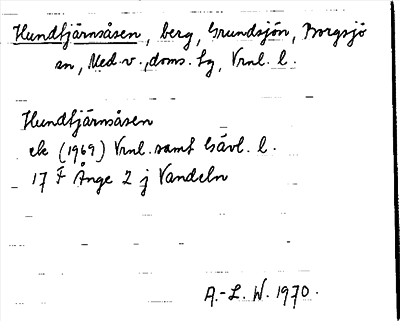 Hundtjärnsåsen, berg, Grundsjön, Borgsjö
sn, Med. v., doms. tg, Vrnl. l.
Hundtjärnsåsen
ek (1969) Vrnl. samt Gävl. l.
17 F Ånge 2 j Vandeln
A.-L. W. 1970.